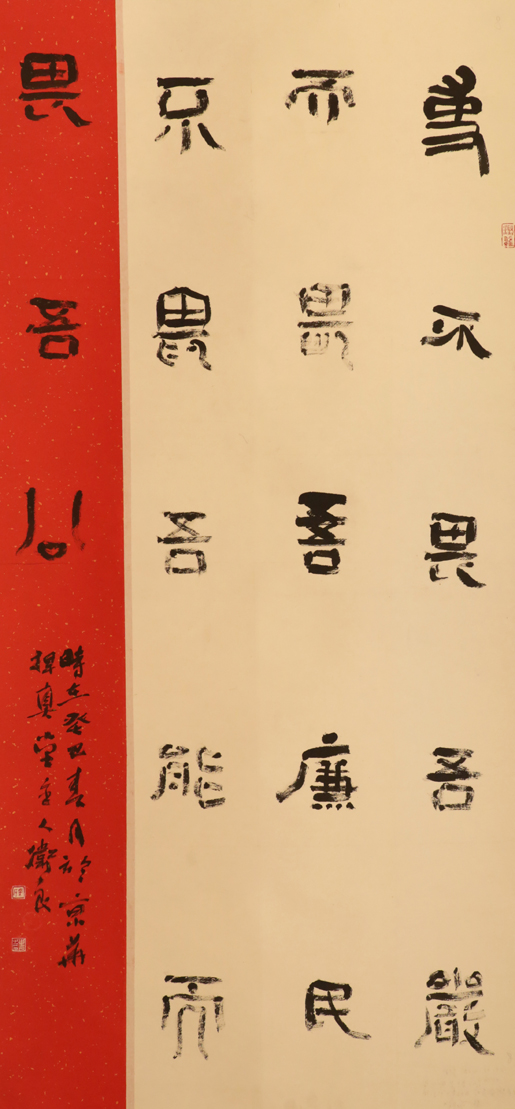 吏不畏吾嚴
而畏吾廉民
不畏吾能而
畏吾公
時在癸巳春月於京華
堂主人